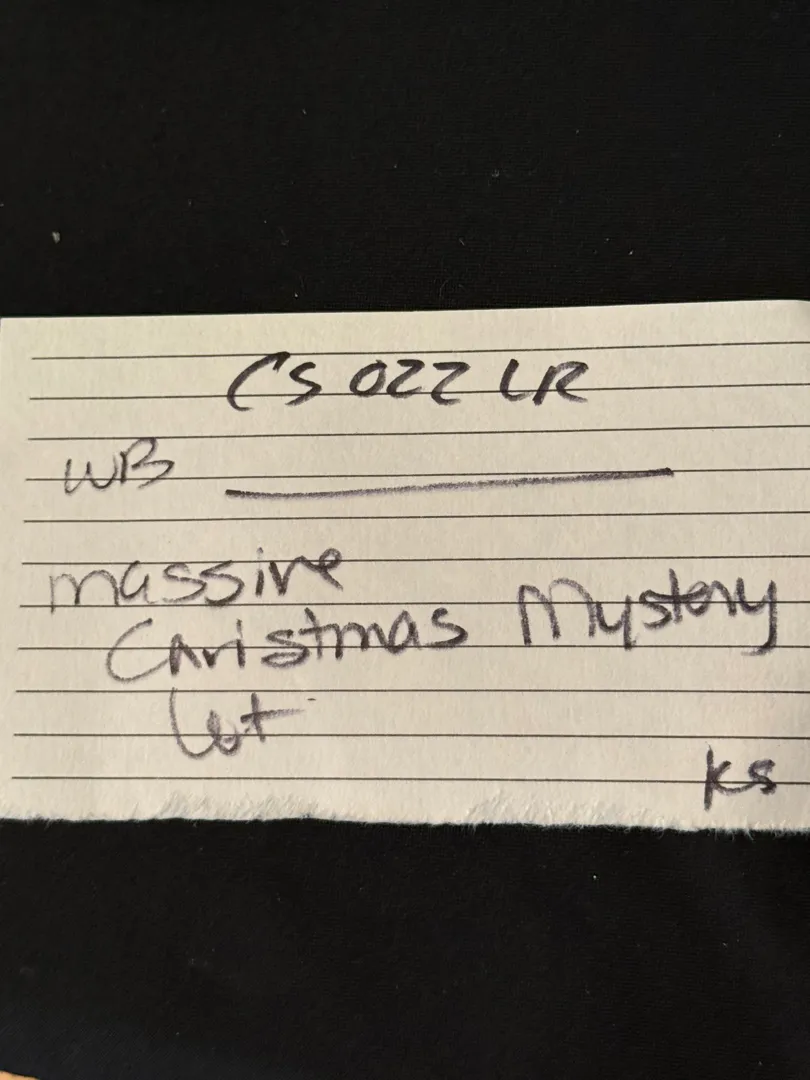 CS 022 LR
WB
massive
Christmas Mystery
Lot
ks